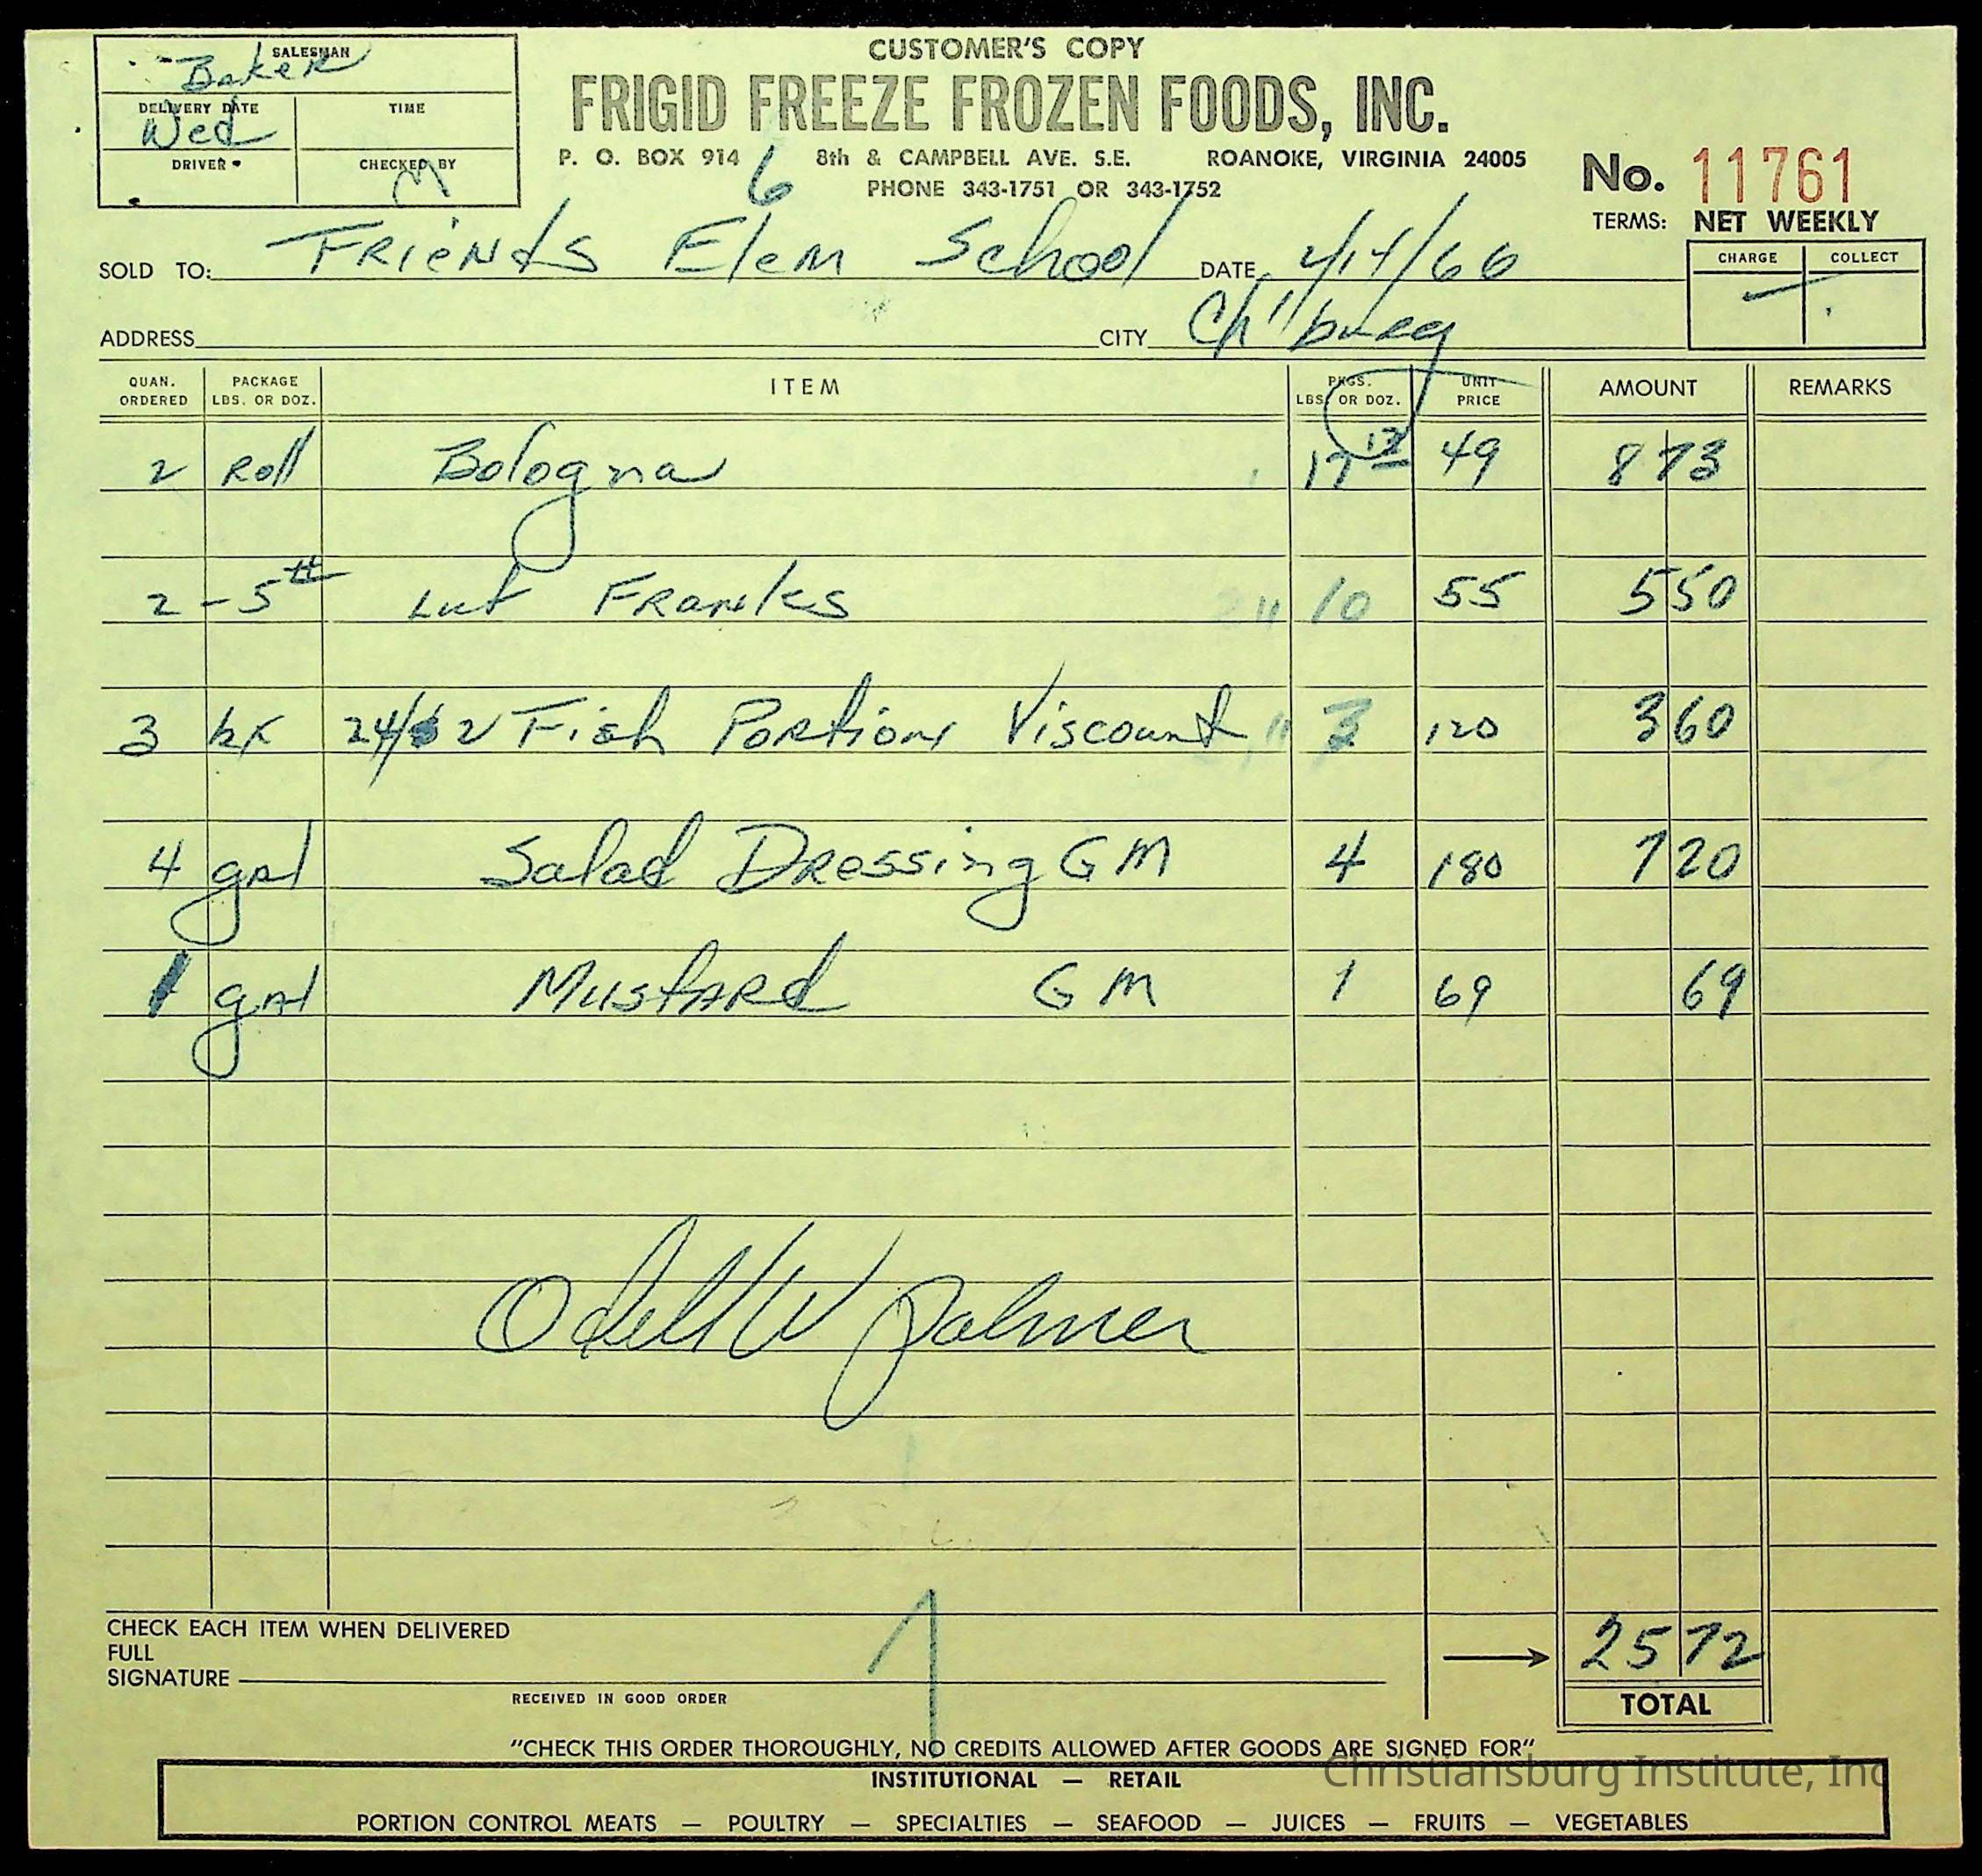 CUSTOMER'S COPY
FRIGID FREEZE FROZEN FOODS, INC.
P. O. BOX 914 8th & CAMPBELL AVE. S.E. ROANOKE, VIRGINIA 24005
PHONE 343-1751 OR 343-1752
6
SALESMAN
Baker
DELIVERY DATE TIME
Wed
DRIVER CHECKED BY
M
No. 11761
TERMS: NET WEEKLY
CHARGE COLLECT
SOLD TO: Friends Elem School DATE 2/14/66
ADDRESS CITY Ch"burg
QUAN. ORDERED PACKAGE LBS. OR DOZ. ITEM PKGS. LBS. OR DOZ. UNIT PRICE AMOUNT REMARKS
2 Roll Bologna 17 13 49 8 73
2 - 5# Franks 10 55 5 50
3 bx 24/ 2 Fish Portions Viscount 3 120 3 60
4 gal Salad Dressing GM 4 180 7 20
1 gal Mustard GM 1 69 69
Odell W Palmer
CHECK EACH ITEM WHEN DELIVERED
FULL
SIGNATURE
RECEIVED IN GOOD ORDER
25 72
TOTAL
"CHECK THIS ORDER THOROUGHLY, NO CREDITS ALLOWED AFTER GOODS ARE SIGNED FOR"
Christiansburg Institute, Inc
INSTITUTIONAL — RETAIL
PORTION CONTROL MEATS — POULTRY — SPECIALTIES — SEAFOOD — JUICES — FRUITS — VEGETABLES